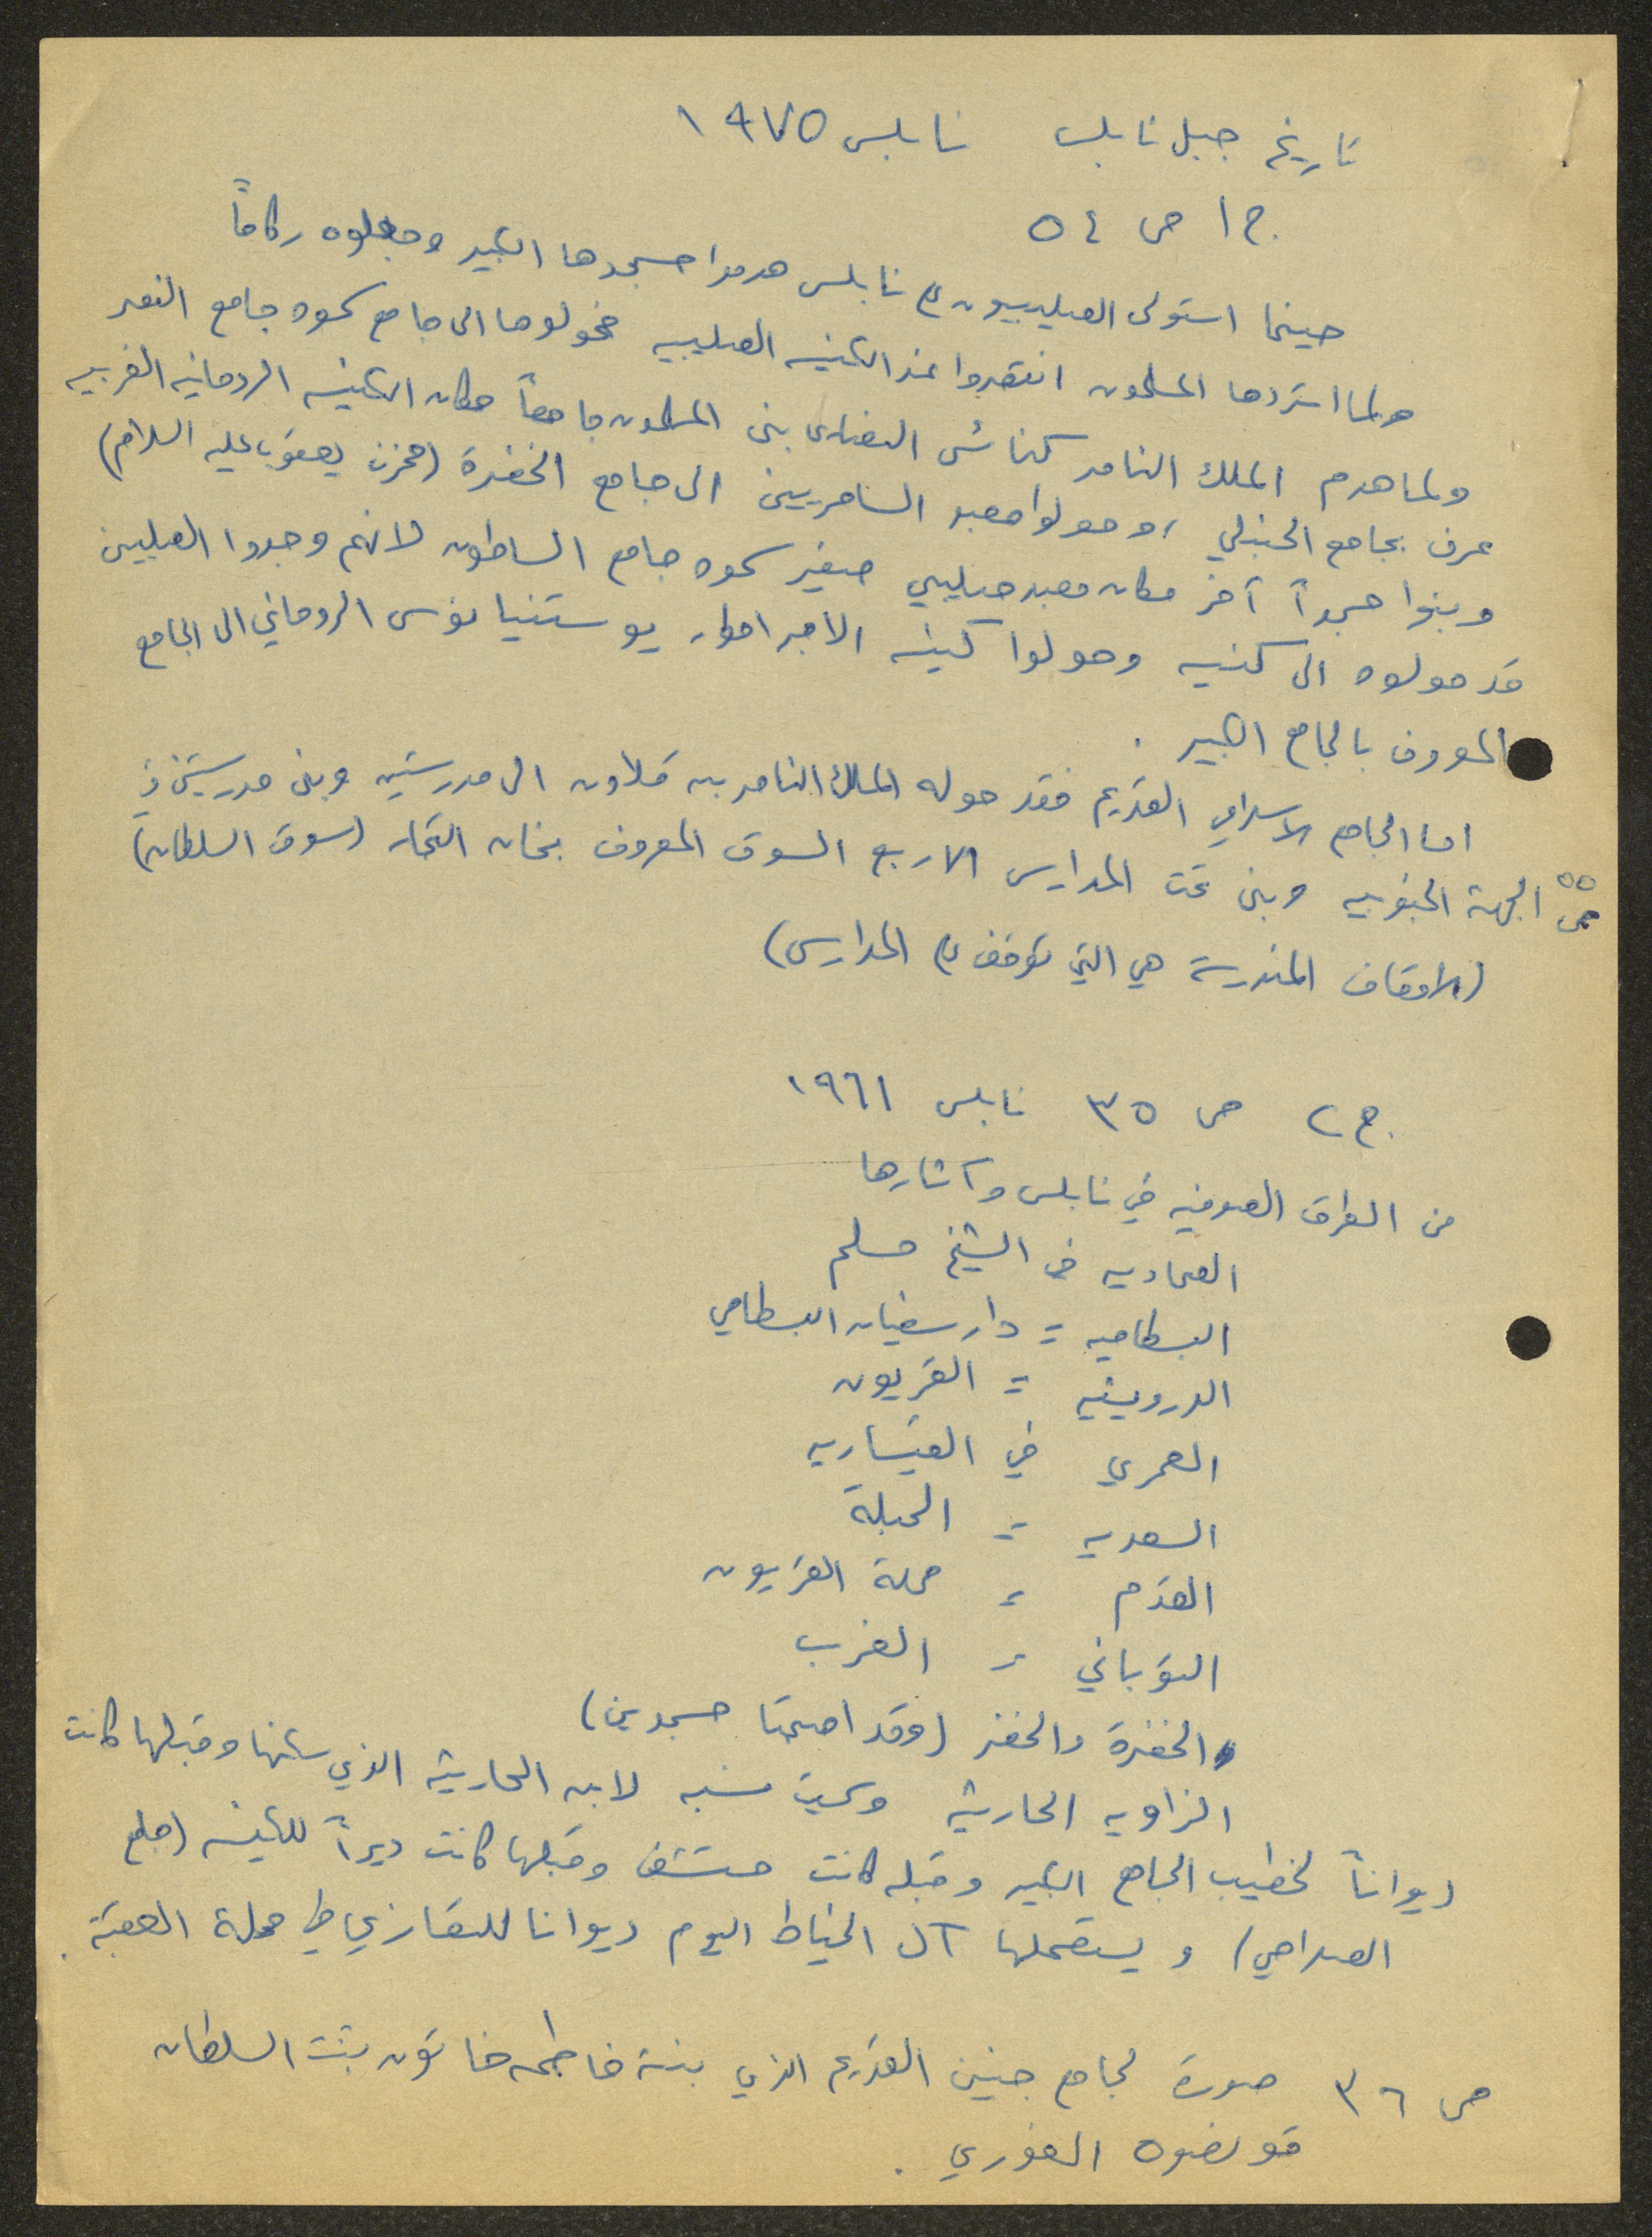 تاريخ جبل نابلس نابلس ١٩٧٥
ج ١ ص ٥٤
حينما استولى الصليبيون على نابلس هدموا مسجدها الكبير وجعلوه ركاماً
ولما استردها المسلمون انتقموا عند الكنيسه الصليبيه فحولوها الى جامع سموه جامع النصر
ولما هدم الملك الناصر كنائس النصارى بنى المسلمون جامعاً مكان الكنيسه الرومانيه الغربيه
عرف بجامع الحنبلي ، وحولوا معبد السامريين الى جامع الخضرة (محزن يعقوب عليه السلام)
وبنوا مسجداً آخر مكان معبد صليبي صغير سموه جامع الساطون لانهم وجدوا الصليبين
قد حولوه الى كنيسه وحولوا كنيسه الامبراطور يوستنيانوس الروماني الى الجامع
المعروف بالجامع الكبير .
اما الجامع الاسلامي القديم فقد حوله الملك الناصر بن قلاون الى مدرستين وبنى مدرستين في
ص ٥٥ الجهة الجنوبيه وبنى تحت المدارس الاربع السوق المعروف بخان التجار (سوق السلطان)
(الاوقاف المندرسة هي التي توقف على المدارس)
ج ٢ ص ٣٥ نابلس ١٩٦١
من الطرق الصوفيه في نابلس وآثارها
العماديه في الشيخ مسلم
البسطاميه = دار سفيان البسطامي
الدرويشيه = القريون
العمري في القيساريه
السعديه = الحبلة
القدم = محلة القريون
التوباني = الغرب
والخضرة والخضر (وقد اصبحتا مسجدين)
الزاويه الحارثيه وسميت نسبه لابن الحارثيه الذي سكنها وقبلها كانت
ديواناً لخطيب الجامع الكبير وقبله كانت مستشفى وقبلها كانت ديراً للكنيسه (جامع
الصلاحي) ويستعملها آل الخياط اليوم ديوانا للتعازي في محلة العقبة .
ص ٣٦ صورة لجامع جنين القديم الذي بنته فاطمه خاتون بنت السلطان
قونضوه الغوري .